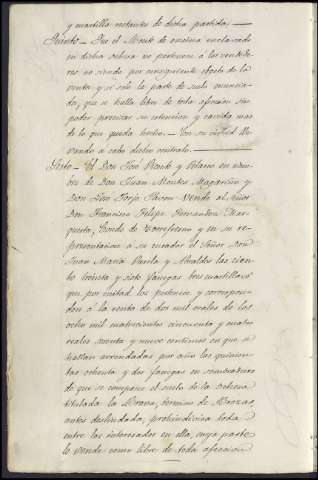 y cuartilla restantes de dicha partida,
Quinto - Que el Monte de encina enclavado
en dicha dehesa no pertenece á los vendedo-
res no siendo por consiguiente objeto de la
venta y si solo la parte de suelo enuncia-
do, que se halla libre de toda afeccion sin
poder precisar su estension y cavida mas
de lo que queda hecho. - Con su virtud lle-
vando a cabo dicho contrato.
Sesto - El Don José en nom-
bre de Don Juan Montes Magariño y
Don Juan Vende al Señor
Don Francisco Felipe Fernandez Mar-
queta, Conde de Torrefresno y en su re-
presentacion á su curador el Señor Don
Juan Maria Varela y las cien-
to treinta y siete fanegas tres cuartillas
que por mitad les pertenece y correspon-
den á la renta de dos mil reales de los
ocho mil cuatrocientos cincuenta y cuatro
reales setenta y nueve centimos en que se
hallan arrendadas por año las quinien-
tas ochenta y dos fanegas en sembradura
de que se compone el suelo de la dehesa
titulada la termino de Brozas
antes deslindada, proindivisa toda
entre los interesados en ella, cuya parte
le vende como libre de toda afeccion